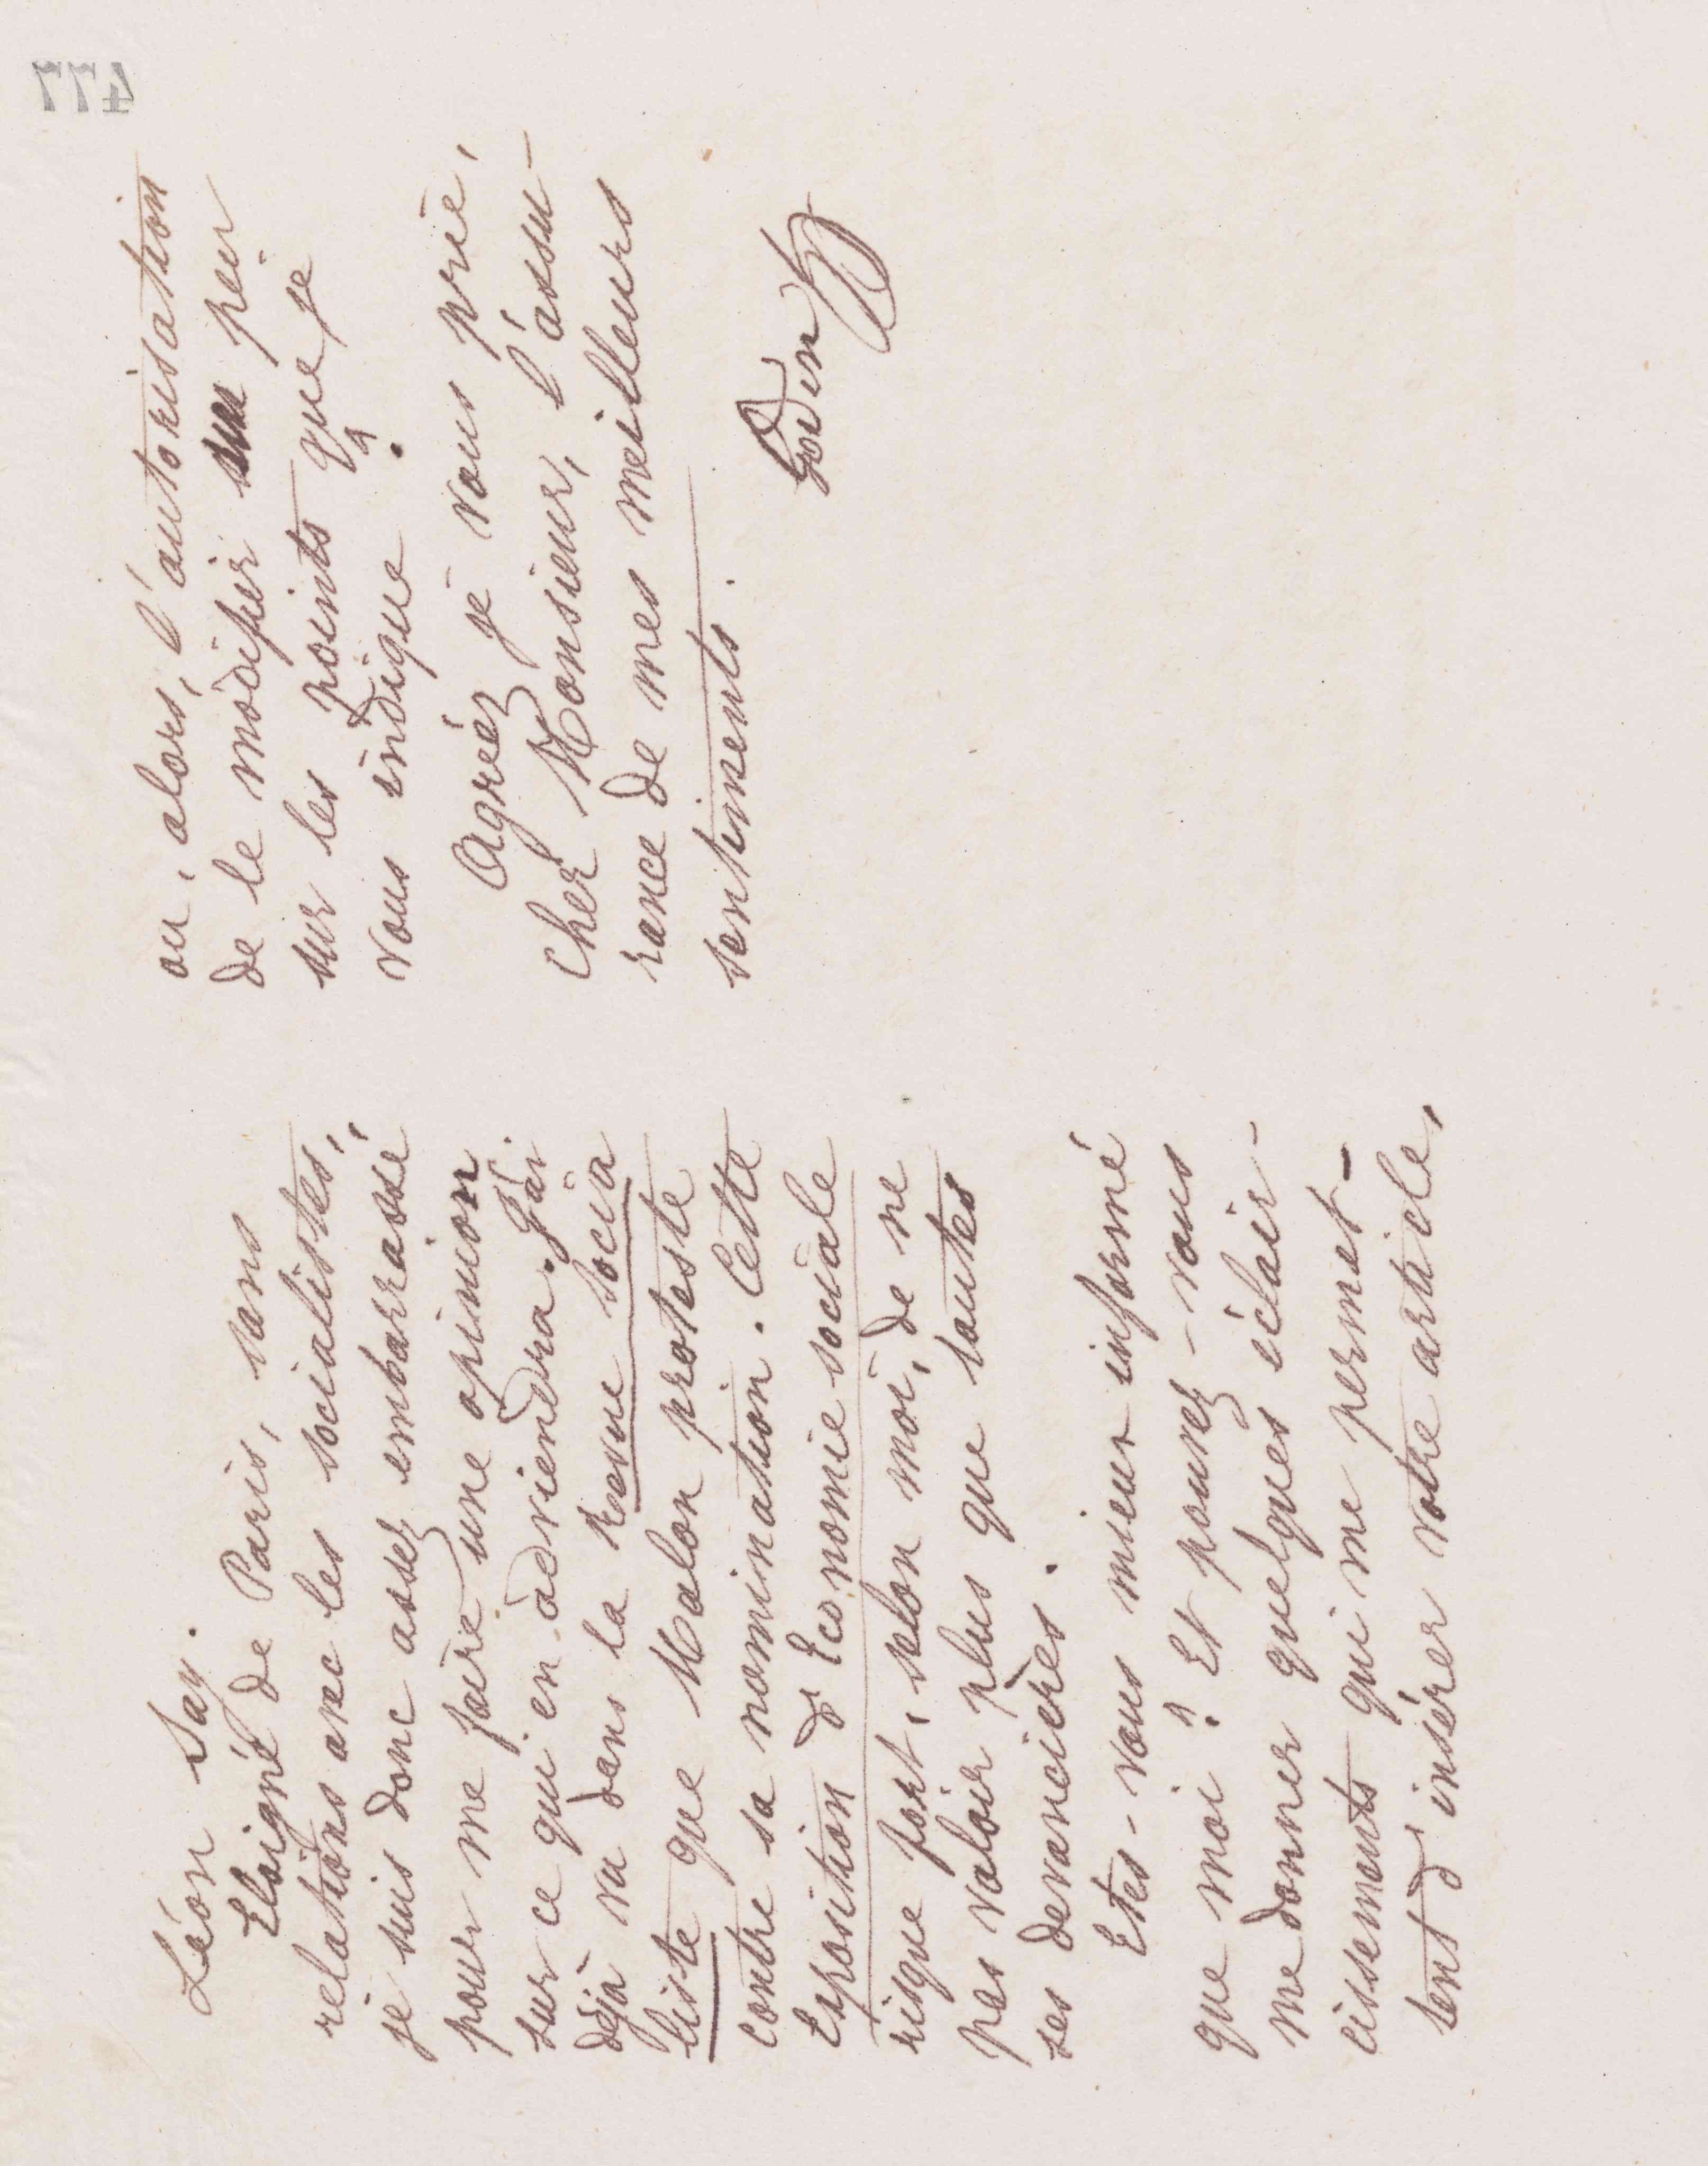 Léon Say.
Eloigné de Paris, sans
relations avec les socialistes,
je suis donc assez embarrassé
pour me faire une opinion
sur ce qui en adviendra. J'ai
déjà vu dans la Revue socia
liste que Malon proteste
contre sa nomination. Cette
Exposition d'Economie sociale
risque fort, selon moi, de ne
pas valoir plus que toutes
ses devancières.
Etes-vous mieux informé
que moi ? Et pouvez-vous
me donner quelques éclair-
cissements qui me permet-
tent d'insérer votre article,
ou, alors, l'autorisation
de le modifier un peu
sur les points que je
vous indique ?
Agréez je vous prie,
cher Monsieur, l'assu-
rance de mes meilleurs
sentiments.
Godin